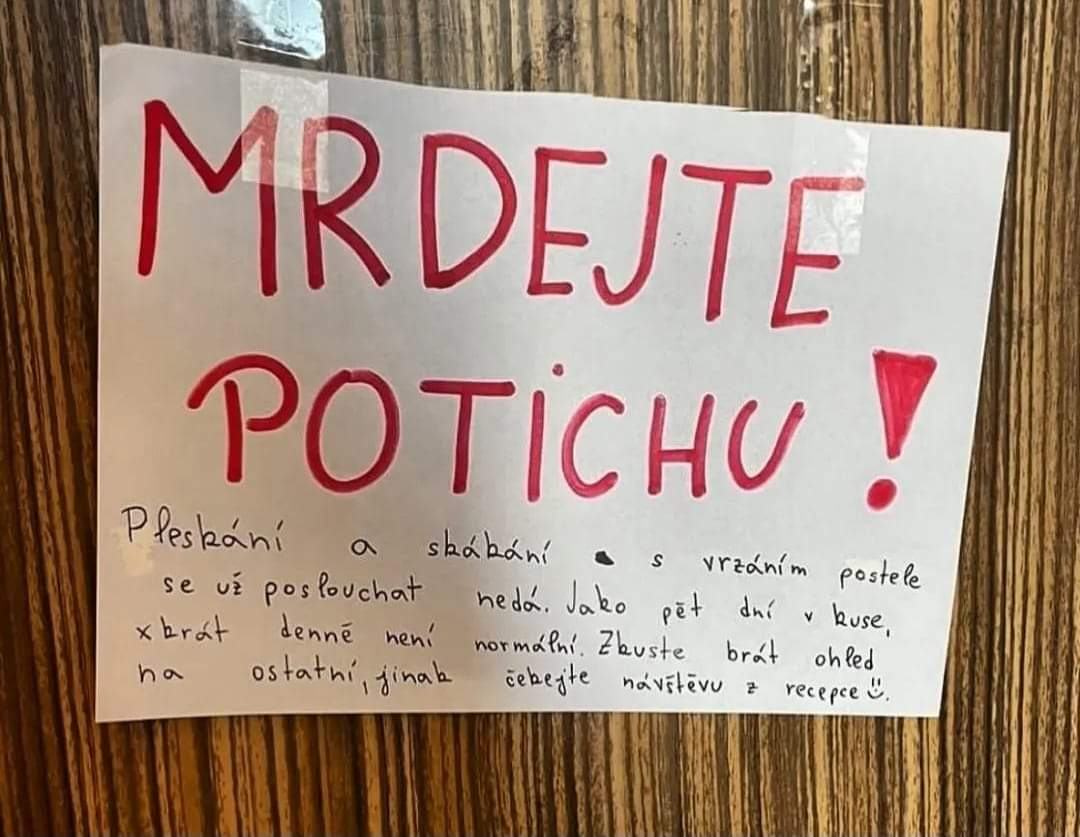 MRDEJTE
POTiCHU!
Pleskání a skákání s vrzáním postele
se už poslouchat nedá. Jako pět dní v kuse,
xkrát denně není normální. Zkuste brát ohled
na ostatní, jinak čekejte návštěvu z recepce ☺.